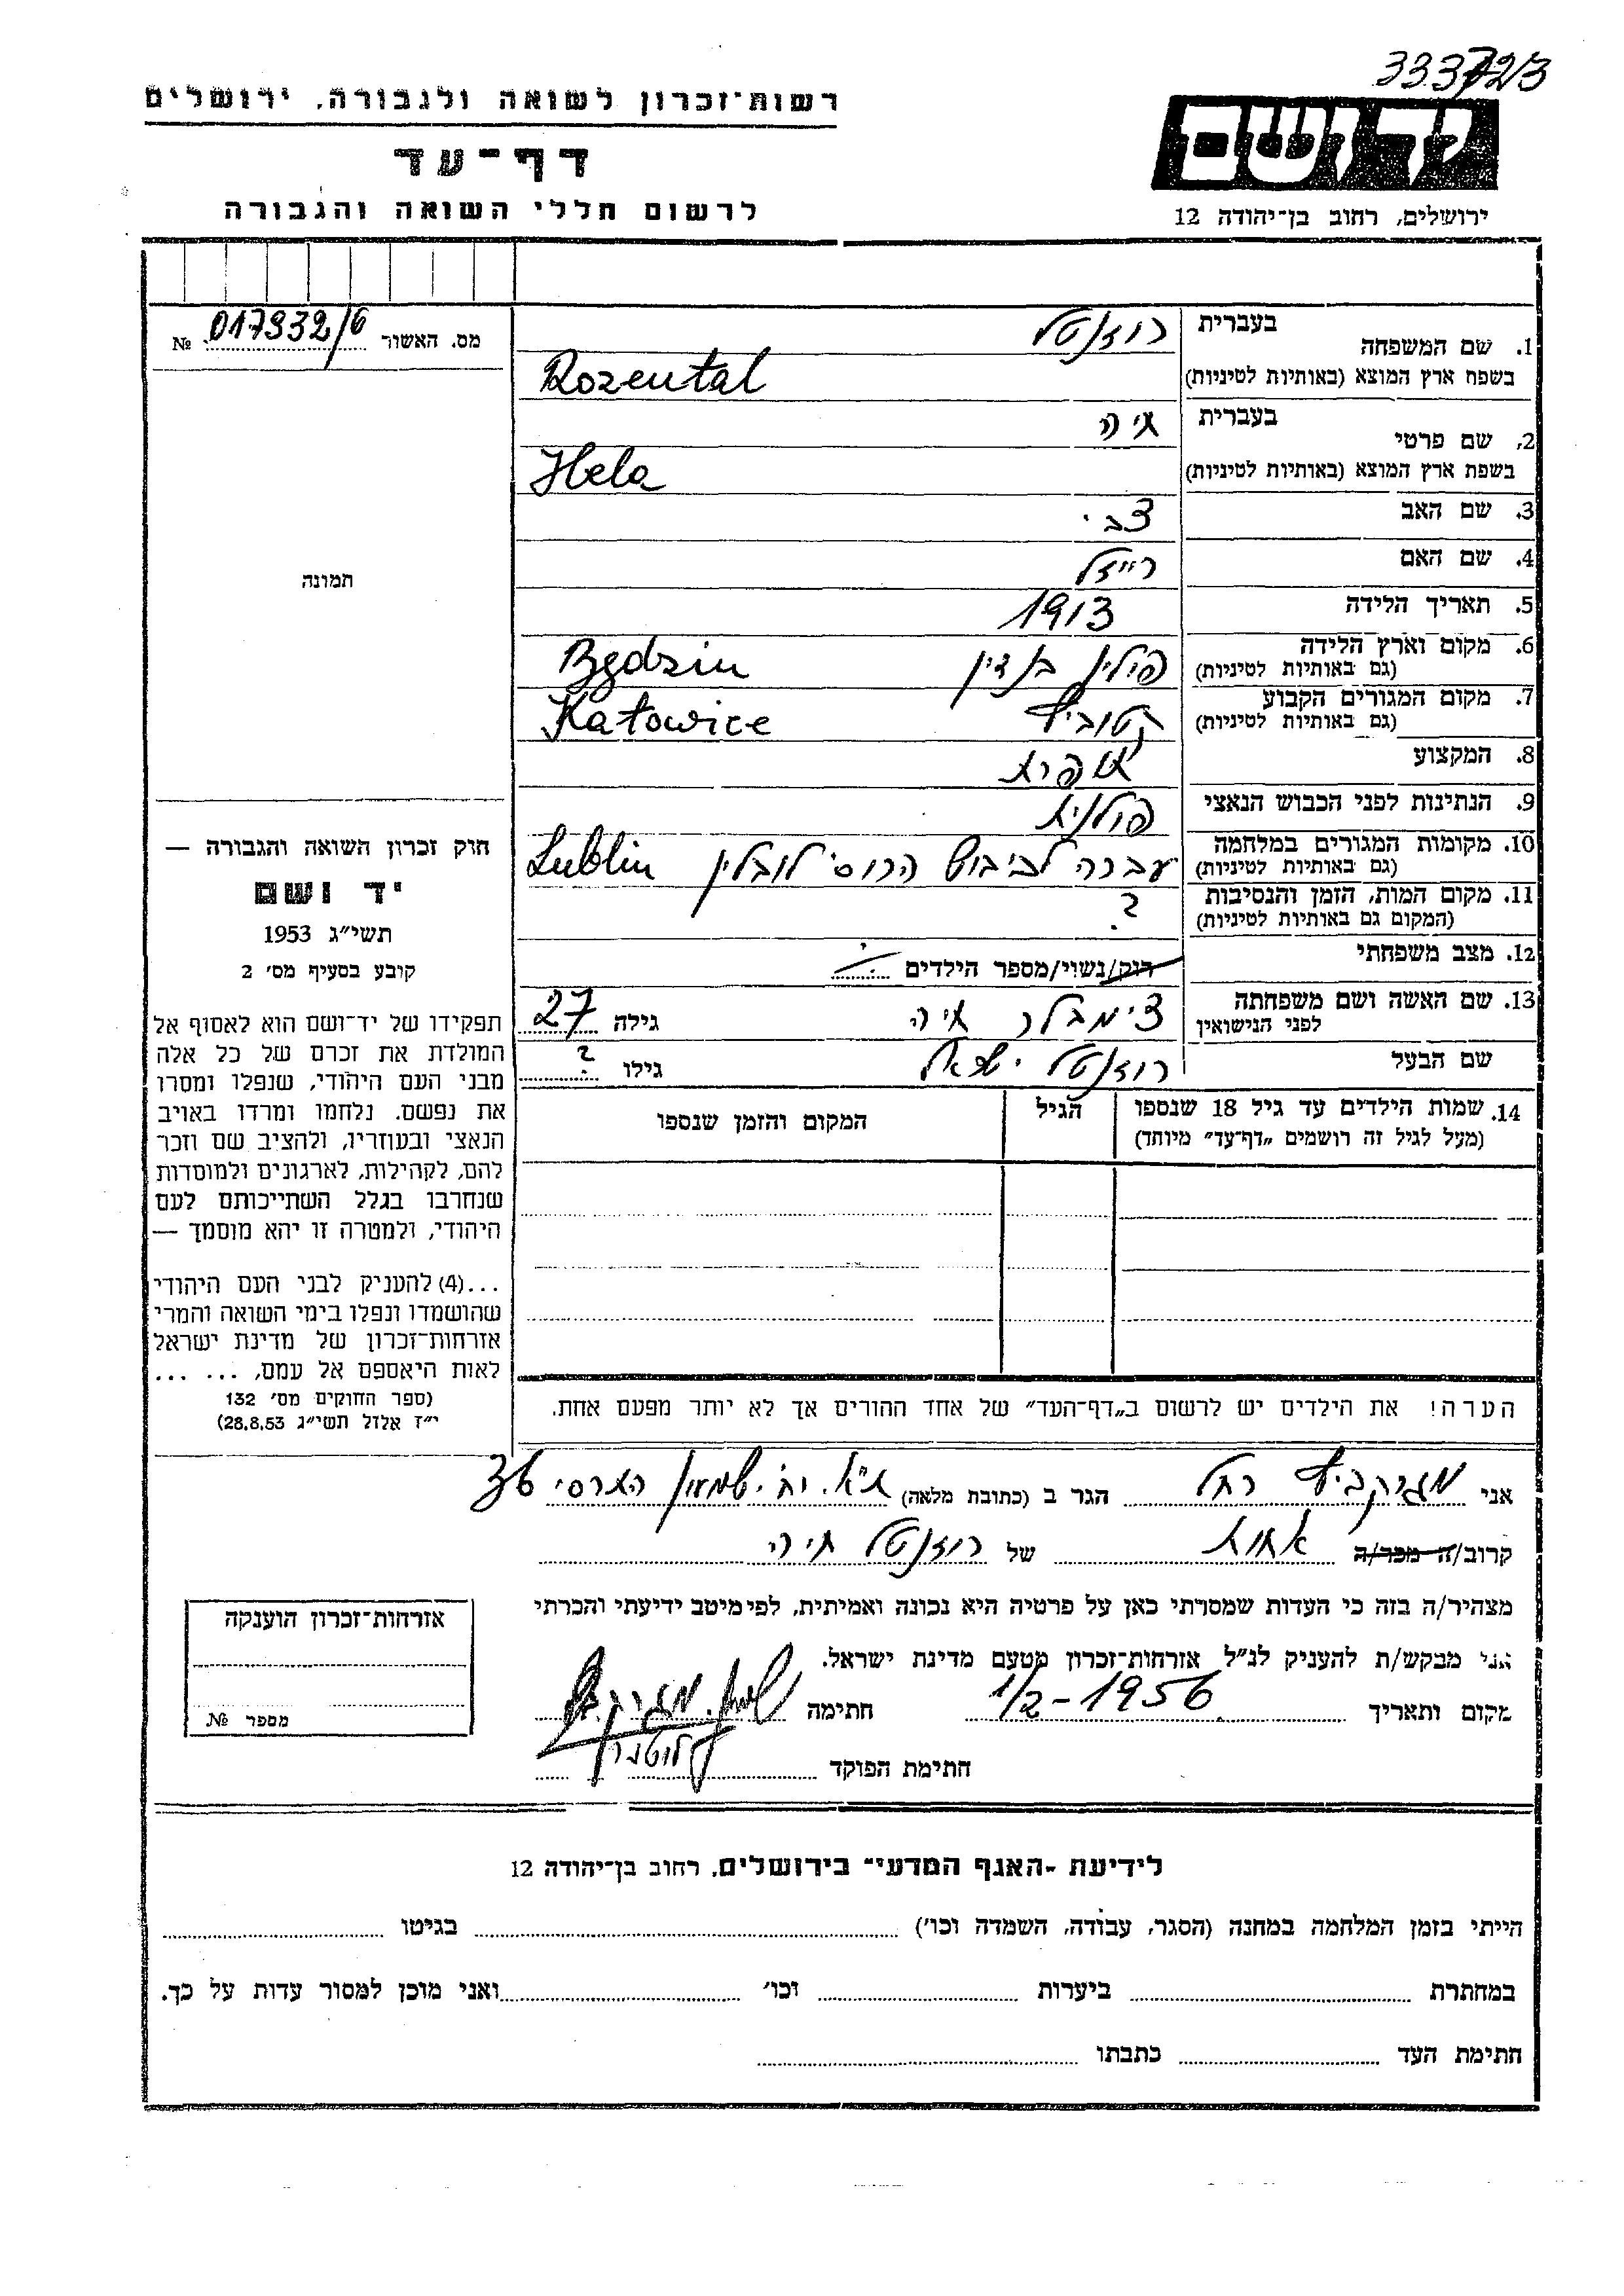 333723
רשות־זכרון לשואה ולגבורה, ירושלים
דף־עד
לרשום חללי השואה והגבורה
יד ושם
ירושלים, רחוב בן־יהודה 12
מס. האשור 017932/6 №
תמונה
חוק זכרון השואה והגבורה —
יד ושם
תשי״ג 1953
קובע בסעיף מס׳ 2
תפקידו של יד־ושם הוא לאסוף אל
המולדת את זכרם של כל אלה
מבני העם היהודי, שנפלו ומסרו
את נפשם, נלחמו ומרדו באויב
הנאצי ובעוזריו, ולהציב שם וזכר
להם, לקהילות, לארגונים ולמוסדות
שנחרבו בגלל השתייכותם לעם
היהודי, ולמטרה זו יהא מוסמך —
...(4) להעניק לבני העם היהודי
שהושמדו ונפלו בימי השואה והמרי
אזרחות־זכרון של מדינת ישראל
לאות היאספם אל עמם, ... ...
(ספר החוקים מס׳ 132
י״ז אלול תשי״ג 28.8.53)
1. שם המשפחה בעברית רוזנטל
בשפת ארץ המוצא (באותיות לטיניות) Rozental
2. שם פרטי בעברית חיה
בשפת ארץ המוצא (באותיות לטיניות) Hela
3. שם האב צבי
4. שם האם רייזל
5. תאריך הלידה 1913
6. מקום וארץ הלידה (גם באותיות לטיניות) פולין בנדין Będzin
7. מקום המגורים הקבוע (גם באותיות לטיניות) קטוביץ Katowice
8. המקצוע
9. הנתינות לפני הכבוש הנאצי פולנית
10. מקומות המגורים במלחמה (גם באותיות לטיניות) עברה לכיבוש הרוסי לובלין Lublin
11. מקום המות, הזמן והנסיבות (המקום גם באותיות לטיניות) ?
12. מצב משפחתי רוק/נשוי/מספר הילדים
13. שם האשה ושם משפחתה לפני הנישואין צימבלר חיה גילה 27
שם הבעל רוזנטל ישראל גילו ?
14. שמות הילדים עד גיל 18 שנספו (מעל לגיל זה רושמים „דף־עד״ מיוחד) הגיל המקום והזמן שנספו
הערה! את הילדים יש לרשום ב„דף־העד״ של אחד ההורים אך לא יותר מפעם אחת.
אני רחל הגר ב (כתובת מלאה) ת״א. רח׳ שמעון הטרסי 36
קרוב/ה מכר/ה אחות של רוזנטל חיה
מצהיר/ה בזה כי העדות שמסרתי כאן על פרטיה היא נכונה ואמיתית, לפי מיטב ידיעתי והכרתי
אני מבקש/ת להעניק לנ״ל אזרחות־זכרון מטעם מדינת ישראל.
מקום ותאריך 1/2-1956 חתימה
חתימת הפוקד
אזרחות־זכרון הוענקה
מספר №
לידיעת ־האגף המדעי־ בירושלים, רחוב בן־יהודה 12
הייתי בזמן המלחמה במחנה (הסגר, עבודה, השמדה וכו׳) בגיטו
במחתרת ביערות וכו׳ ואני מוכן למסור עדות על כך.
חתימת העד כתבתו